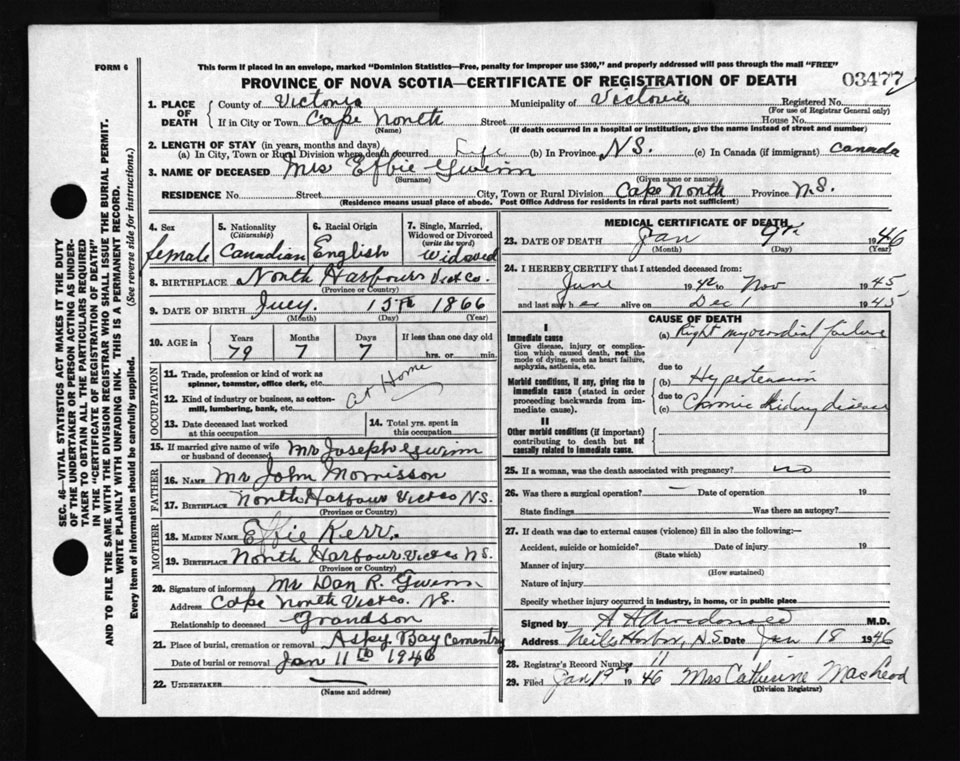 FORM 6
This form if placed in an envelope, marked "Dominion Statistics—Free, penalty for improper use $300," and properly addressed will pass through the mail "FREE"
PROVINCE OF NOVA SCOTIA—CERTIFICATE OF REGISTRATION OF DEATH 03477
1. PLACE OF DEATH County of Victoria Municipality of Victoria Registered No.
(For use of Registrar General only)
If in City or Town Cape North Street House No.
(Name) (If death occurred in a hospital or institution, give the name instead of street and number)
2. LENGTH OF STAY (in years, months and days)
(a) In City, Town or Rural Division where death occurred Life (b) In Province N.S. (c) In Canada (if immigrant) Canada
3. NAME OF DECEASED Mrs Effie Gwinn
(Surname) (Given name or names)
RESIDENCE No. Street City, Town or Rural Division Cape North Province N.S.
(Residence means usual place of abode. Post Office Address for residents in rural parts not sufficient)
4. Sex 5. Nationality (Citizenship) 6. Racial Origin 7. Single, Married, Widowed or Divorced (write the word)
female Canadian English widowed
8. BIRTHPLACE North Harbour Vict Co.
(Province or Country)
9. DATE OF BIRTH 15th 1866
(Month) (Day) (Year)
10. AGE in Years Months Days If less than one day old
79 7 7 hrs. or min.
OCCUPATION
11. Trade, profession or kind of work as spinner, teamster, office clerk, etc.
At Home
12. Kind of industry or business, as cotton-mill, lumbering, bank, etc.
13. Date deceased last worked at this occupation 14. Total yrs. spent in this occupation
15. If married give name of wife or husband of deceased Mr Joseph Gwinn
FATHER
16. NAME Mr John Morrisson
17. BIRTHPLACE North Harbour Vict Co N.S.
(Province or Country)
MOTHER
18. MAIDEN NAME Effie Kerr.
19. BIRTHPLACE North Harbour Vict Co N.S.
(Province or Country)
20. Signature of informant Mr Dan R. Gwinn
Address Cape North Vict Co. N.S.
Relationship to deceased Grandson
21. Place of burial, cremation or removal Aspy Bay Cementry
Date of burial or removal Jan 11th 1946
22. UNDERTAKER
(Name and address)
MEDICAL CERTIFICATE OF DEATH
23. DATE OF DEATH Jan 9th 1946
(Month) (Day) (Year)
24. I HEREBY CERTIFY that I attended deceased from:
June 1942 to Nov 1945
and last saw her alive on Dec 1 1945
CAUSE OF DEATH
I
Immediate cause
Give disease, injury or complication which caused death, not the mode of dying, such as heart failure, asphyxia, asthenia, etc.
(a) Right myocardial failure
due to
Morbid conditions, if any, giving rise to immediate cause (stated in order proceeding backwards from immediate cause).
(b) Hypertension
due to
(c) Chronic Kidney disease
II
Other morbid conditions (if important) contributing to death but not causally related to immediate cause.
25. If a woman, was the death associated with pregnancy? no
26. Was there a surgical operation? — Date of operation 19
State findings Was there an autopsy?
27. If death was due to external causes (violence) fill in also the following:—
Accident, suicide or homicide? Date of injury 19
(State which)
Manner of injury
(How sustained)
Nature of injury
Specify whether injury occurred in industry, in home, or in public place
Signed by A A Macdonald M.D.
Address Neils Harbor, N.S. Date Jan 18 1946
28. Registrar's Record Number 11
29. Filed Jan 19th 1946 Mrs Catherine MacLeod
(Division Registrar)
SEC. 46—VITAL STATISTICS ACT MAKES IT THE DUTY
OF THE UNDERTAKER OR PERSON ACTING AS UNDER-
TAKER TO OBTAIN ALL THE PARTICULARS REQUIRED
IN THE "CERTIFICATE OF REGISTRATION OF DEATH"
AND TO FILE THE SAME WITH THE DIVISION REGISTRAR WHO SHALL ISSUE THE BURIAL PERMIT.
WRITE PLAINLY WITH UNFADING INK. THIS IS A PERMANENT RECORD.
Every item of information should be carefully supplied. (See reverse side for instructions.)